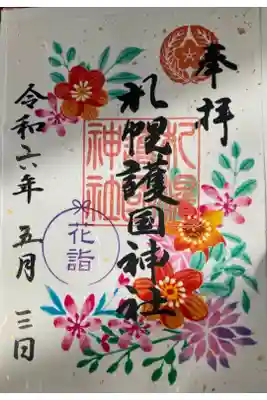 奉拝
札幌護国神社
札幌
神社
花詣
令和六年 五月 三日